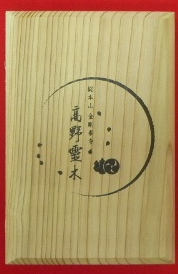 総本山 金剛峯寺
高野霊木